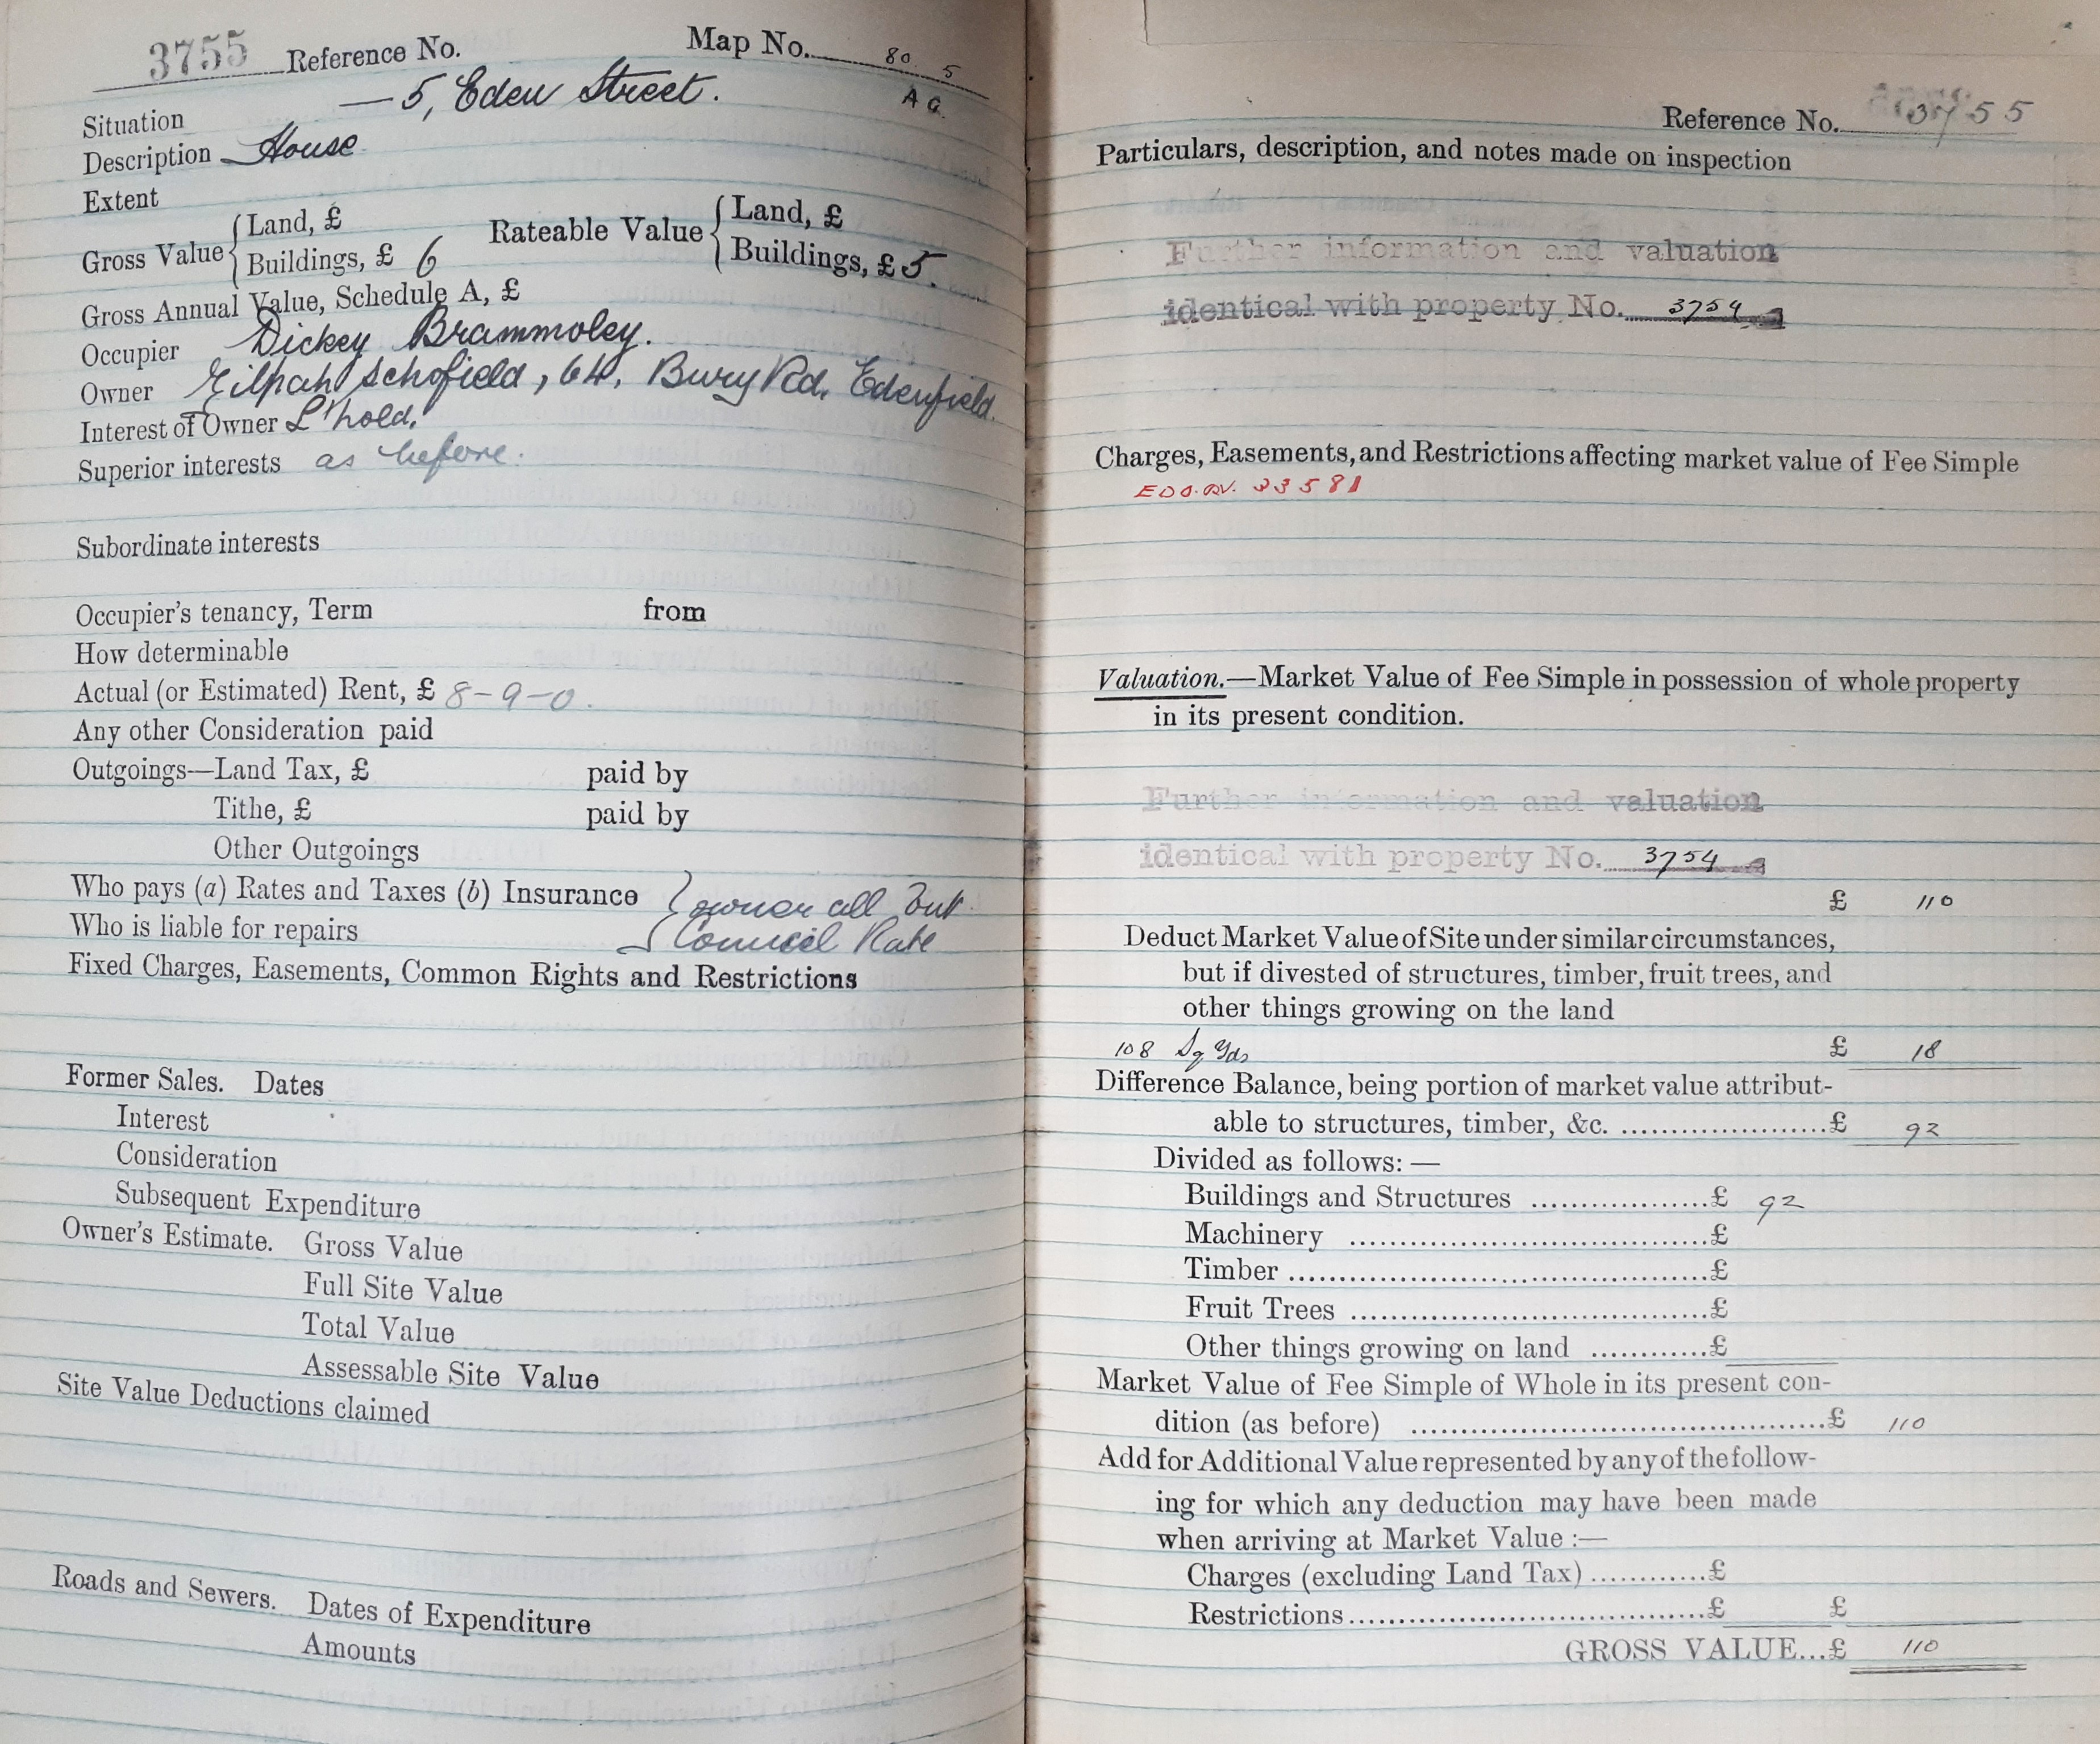 3755 Reference No. Map No. 80 5
A G.
Situation — 5, Eden Street.
Description House
Extent
Gross Value { Land, £
Buildings, £ 6
Rateable Value { Land, £
Buildings, £ 5.
Gross Annual Value, Schedule A, £
Occupier Dickey Brammoley.
Owner Schofield, 64, Bury Rd. Edenfield.
Interest of Owner L'hold.
Superior interests as before.
Subordinate interests
Occupier's tenancy, Term from
How determinable
Actual (or Estimated) Rent, £ 8-9-0.
Any other Consideration paid
Outgoings—Land Tax, £ paid by
Tithe, £ paid by
Other Outgoings
Who pays (a) Rates and Taxes (b) Insurance } owner all but
Who is liable for repairs } Council Rate
Fixed Charges, Easements, Common Rights and Restrictions
Former Sales. Dates
Interest
Consideration
Subsequent Expenditure
Owner's Estimate. Gross Value
Full Site Value
Total Value
Assessable Site Value
Site Value Deductions claimed
Roads and Sewers. Dates of Expenditure
Amounts
Reference No. 3755
Particulars, description, and notes made on inspection
Further information and valuation
identical with property No. 3754
Charges, Easements, and Restrictions affecting market value of Fee Simple
33581
Valuation.—Market Value of Fee Simple in possession of whole property
in its present condition.
Further information and valuation
identical with property No. 3754
£ 110
Deduct Market Value of Site under similar circumstances,
but if divested of structures, timber, fruit trees, and
other things growing on the land
108 Sq Yds £ 18
Difference Balance, being portion of market value attribut-
able to structures, timber, &c. ....................£ 92
Divided as follows: —
Buildings and Structures ..................£ 92
Machinery .....................................£
Timber ...........................................£
Fruit Trees ....................................£
Other things growing on land ............£
Market Value of Fee Simple of Whole in its present con-
dition (as before) ..........................................£ 110
Add for Additional Value represented by any of the follow-
ing for which any deduction may have been made
when arriving at Market Value :—
Charges (excluding Land Tax) ............£
Restrictions....................................£ £
GROSS VALUE...£ 110